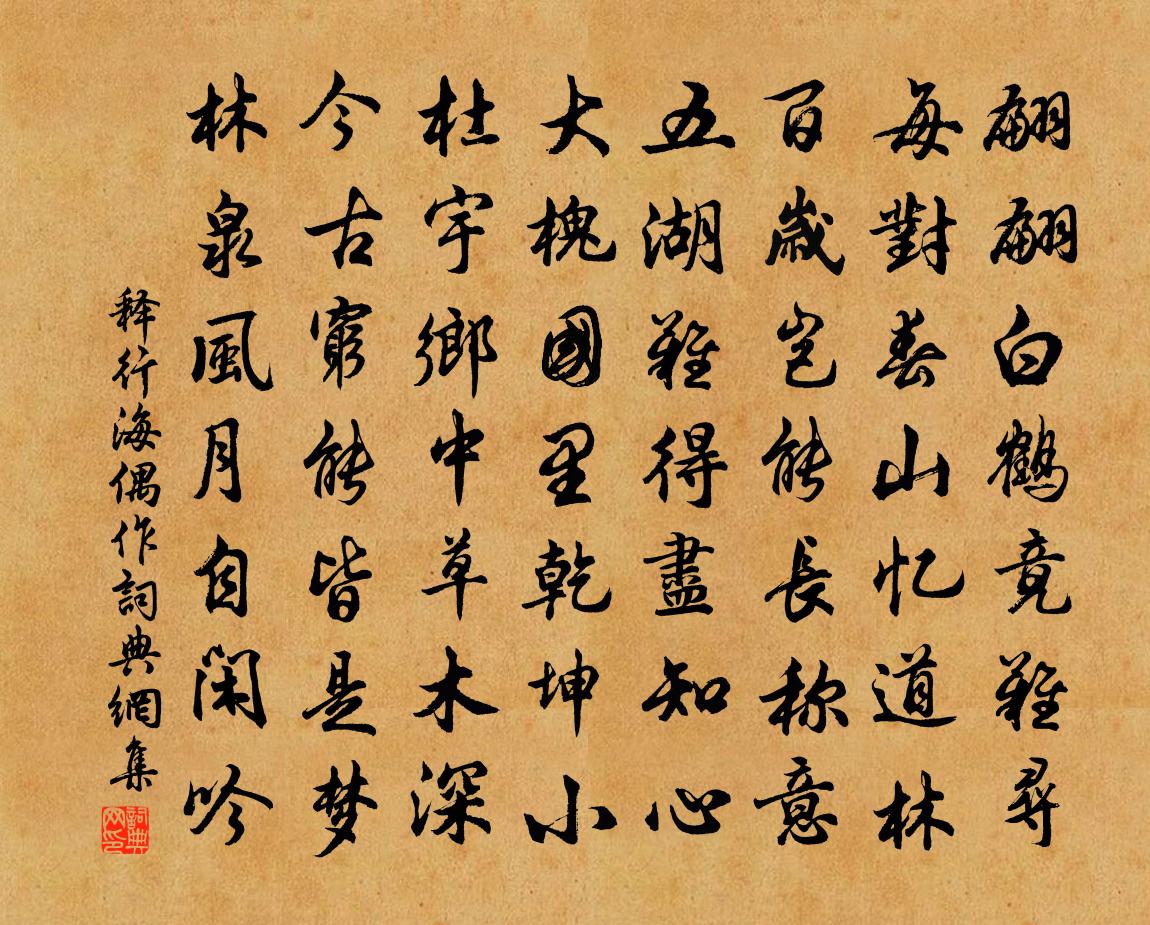 翩翩白鶴竟難尋
每對春山忆道林
百歲豈能長称意
五湖難得盡知心
大槐國里乾坤小
杜宇鄉中草木深
今古窮能皆是梦
林泉風月自閑吟
释行海偶作詞典網集
詞典网印